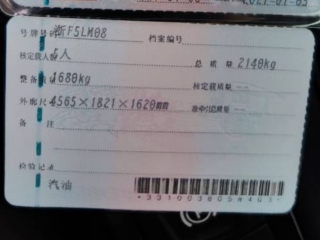 号牌号码 浙F5LM08 档案编号
核定载人数 5人 总 质 量 2140kg
整备质量 1680kg 核定载质量 --
外廓尺寸 4565×1821×1620mm 准牵引总质量 --
备 注
检验记录
汽油